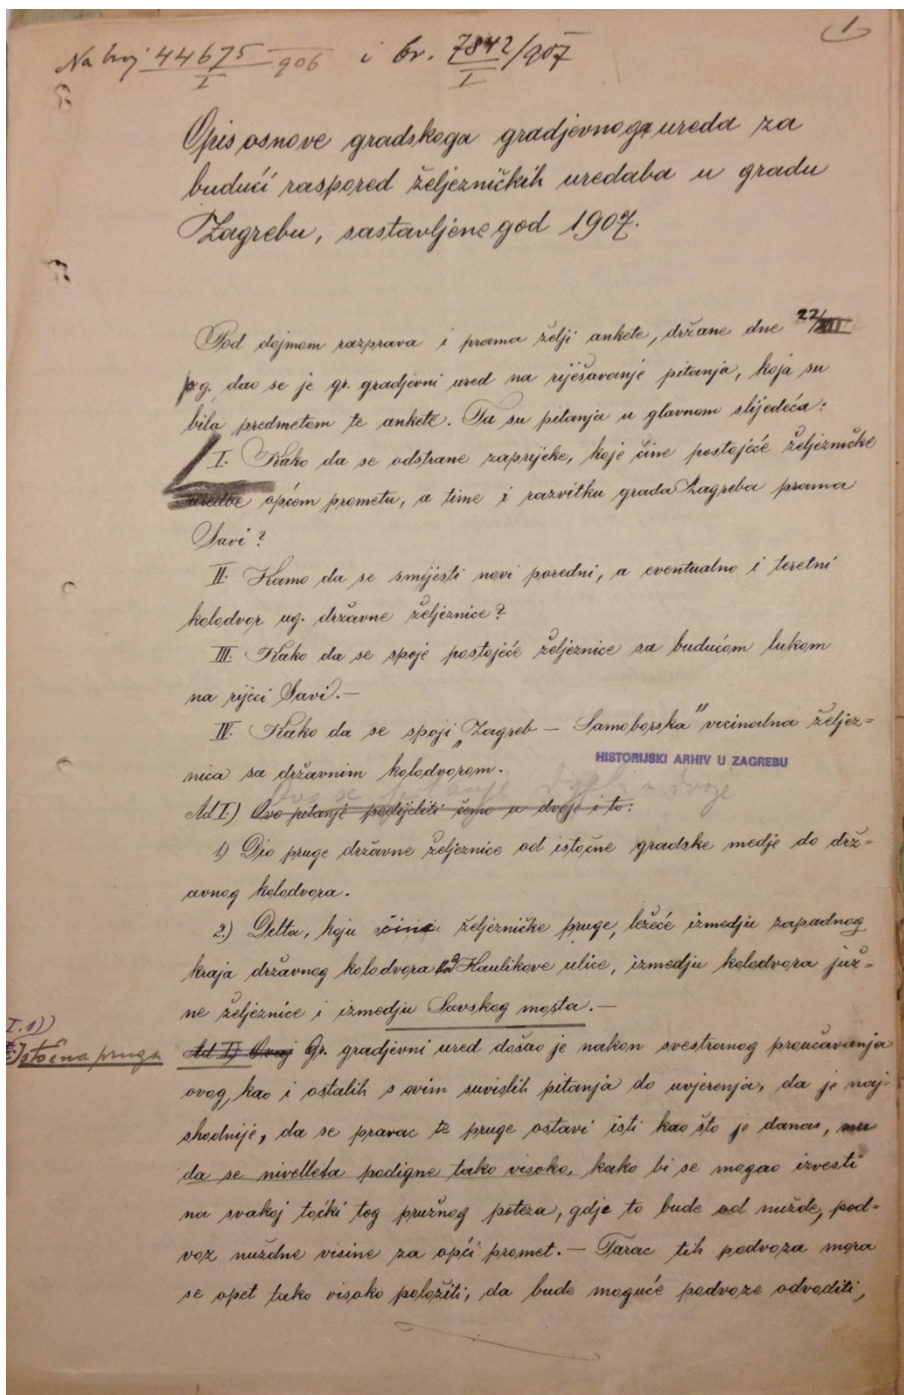 1
Na broj 44675/I 906 i br. 7842/I/907
Opis osnove gradskoga gradjevnoga ureda za
budući raspored željezničkih uredaba u gradu
Zagrebu, sastavljene god 1907.
Pod dojmom razprava i prama želji ankete, držane dne 22/XII
pg. dao se je gr. gradjevni ured na riješavanje pitanja, koja su
bila predmetom te ankete. Ta su pitanja u glavnom slijedeća:
I. Kako da se odstrane zaprijeke, koje čine postojeće željezničke
uredbe općem prometu, a time i razvitku grada Zagreba prama
Savi?
II. Kamo da se smijesti novi poredni, a eventualno i teretni
kolodvor ug. državne željeznice?
III. Kako da se spoje postojeće željeznice sa budućom lukom
na rijeci Savi.—
IV. Kako da se spoji „Zagreb — Samoborska" vicinalna željez=
nica sa državnim kolodvorom.
HISTORIJSKI ARHIV U ZAGREBU
Ovo se pitanje dijeli u dvoje
Ad I.) Ovo pitanje podijeliti ćemo u dvoje i to:
1.) Dio pruge državne željeznice od istočne gradske medje do drž=
avnog kolodvora.
2.) Delta, koju čine željezničke pruge, ležeće izmedju zapadnog
kraja državnog kolodvora Haulikove ulice, izmedju kolodvora juž=
ne željeznice i izmedju Savskog mosta.—
I.1))
Istočna pruga
Ad I) Ovaj Gr. gradjevni ured došao je nakon svestranog proučavanja
ovog, kao i ostalih s ovim suvislih pitanja do uvjerenja, da je naj=
shodnije, da se pravac te pruge ostavi isti kao što je danas,
da se nivelleta podigne tako visoko, kako bi se mogao izvesti
na svakoj točki tog pružnog poteza, gdje to bude od nužde, pod=
voz nuždne visine za opći promet.— Tarac tih podvoza mora
se opet tako visoko položiti, da bude moguće podvoze odvoditi,